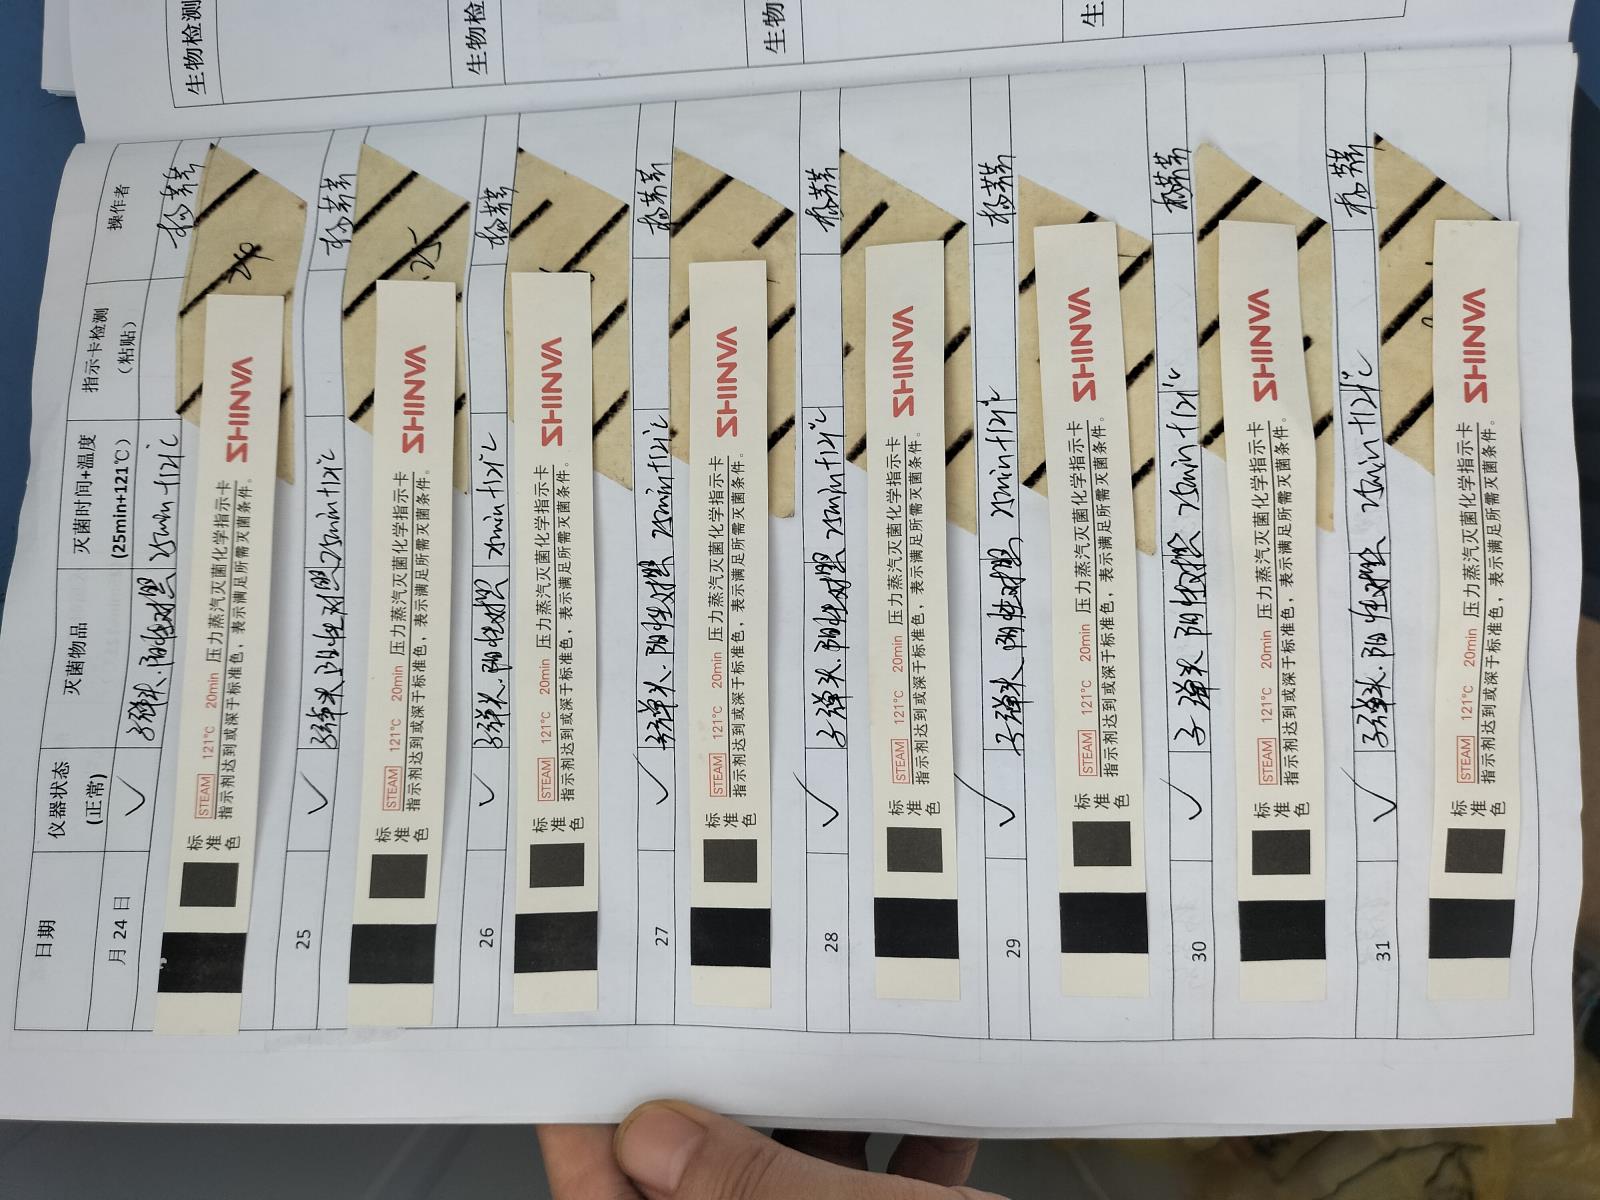 生物检测
生物检
生物
生
日期 仪器状态(正常) 灭菌物品 灭菌时间+温度(25min+121℃) 指示卡检测(粘贴) 操作者
月 24 日 ✓ 子弹头.阳性对照 25min+121℃
24
标准色 STEAM 121℃ 20min 压力蒸汽灭菌化学指示卡 SHINVA
指示剂达到或深于标准色，表示满足所需灭菌条件。
25 ✓ 子弹头 阳性对照 25min+121℃
25
标准色 STEAM 121℃ 20min 压力蒸汽灭菌化学指示卡 SHINVA
指示剂达到或深于标准色，表示满足所需灭菌条件。
26 ✓ 子弹头.阳性对照 25min+121℃
标准色 STEAM 121℃ 20min 压力蒸汽灭菌化学指示卡 SHINVA
指示剂达到或深于标准色，表示满足所需灭菌条件。
27 ✓ 子弹头.阳性对照 25min+121℃
标准色 STEAM 121℃ 20min 压力蒸汽灭菌化学指示卡 SHINVA
指示剂达到或深于标准色，表示满足所需灭菌条件。
28 ✓ 子弹头.阳性对照 25min+121℃
标准色 STEAM 121℃ 20min 压力蒸汽灭菌化学指示卡 SHINVA
指示剂达到或深于标准色，表示满足所需灭菌条件。
29 ✓ 子弹头 阳性对照 25min+121℃
标准色 STEAM 121℃ 20min 压力蒸汽灭菌化学指示卡 SHINVA
指示剂达到或深于标准色，表示满足所需灭菌条件。
30 ✓ 子弹头 阳性对照 25min+121℃
标准色 STEAM 121℃ 20min 压力蒸汽灭菌化学指示卡 SHINVA
指示剂达到或深于标准色，表示满足所需灭菌条件。
31 ✓ 子弹头.阳性对照 25min+121℃
标准色 STEAM 121℃ 20min 压力蒸汽灭菌化学指示卡 SHINVA
指示剂达到或深于标准色，表示满足所需灭菌条件。